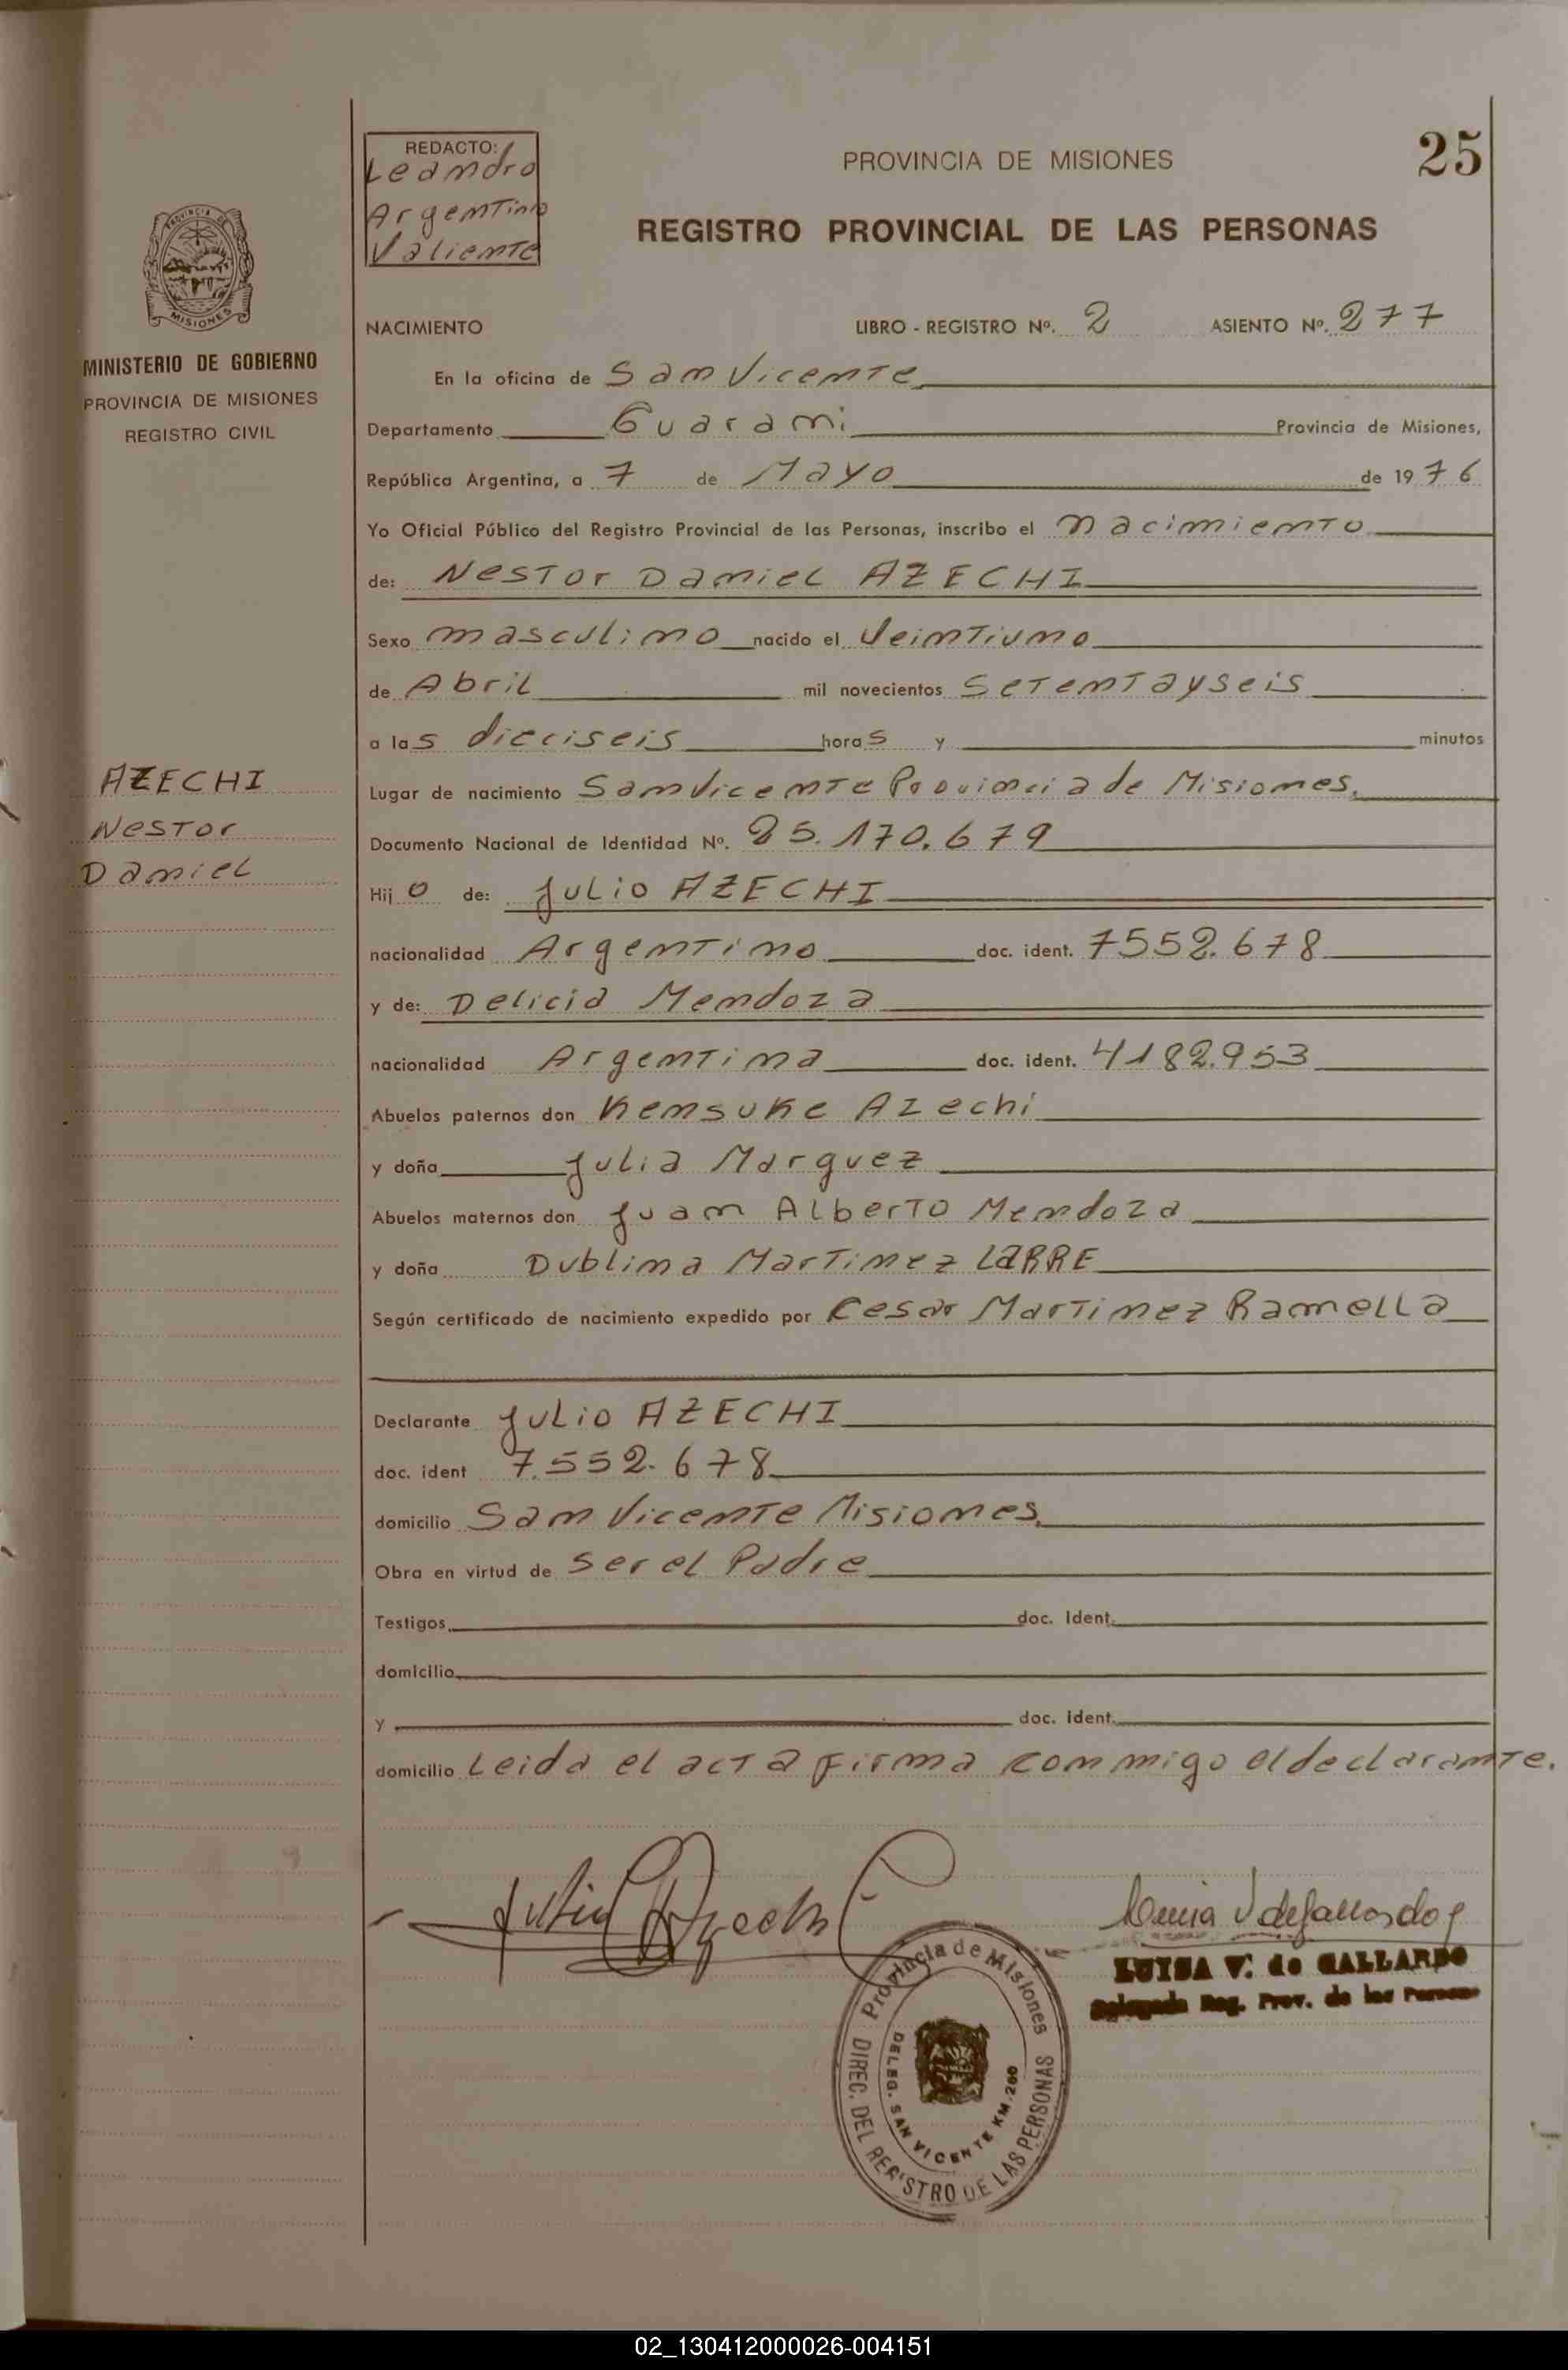 25
REDACTO:
Leandro
Argentino
Valiente
PROVINCIA DE MISIONES
REGISTRO PROVINCIAL DE LAS PERSONAS
PROVINCIA DE
MISIONES
MINISTERIO DE GOBIERNO
PROVINCIA DE MISIONES
REGISTRO CIVIL
AZECHI
Nestor
Daniel
NACIMIENTO LIBRO - REGISTRO Nº. 2 ASIENTO Nº. 277
En la oficina de San Vicente
Departamento Guarani Provincia de Misiones,
República Argentina, a 7 de Mayo de 1976
Yo Oficial Público del Registro Provincial de las Personas, inscribo el nacimiento
de: Nestor Daniel AZECHI
Sexo masculino nacido el Veintiuno
de Abril mil novecientos Setentayseis
a las dieciseis horas y minutos
Lugar de nacimiento San Vicente Provincia de Misiones.
Documento Nacional de Identidad Nº. 25.170.679
Hijo de: Julio AZECHI
nacionalidad Argentino doc. ident. 7552.678
y de: Delicia Mendoza
nacionalidad Argentina doc. ident. 4182.953
Abuelos paternos don Kensuke Azechi
y doña Julia Marquez
Abuelos maternos don Juan Alberto Mendoza
y doña Dublina Martinez LARRE
Según certificado de nacimiento expedido por Cesar Martinez Ramella
Declarante Julio AZECHI
doc. ident 7.552.678
domicilio San Vicente Misiones.
Obra en virtud de Ser el Padre
Testigos doc. Ident.
domicilio
y doc. ident.
domicilio Leida el acta firma conmigo el declarante.
Julio Azechi
LUISA V. de GALLARDO
Delegada Reg. Prov. de las Personas
Provincia de Misiones
DIREC. DEL REGISTRO DE LAS PERSONAS
DELEG. SAN VICENTE KM. 266
02_130412000026-004151